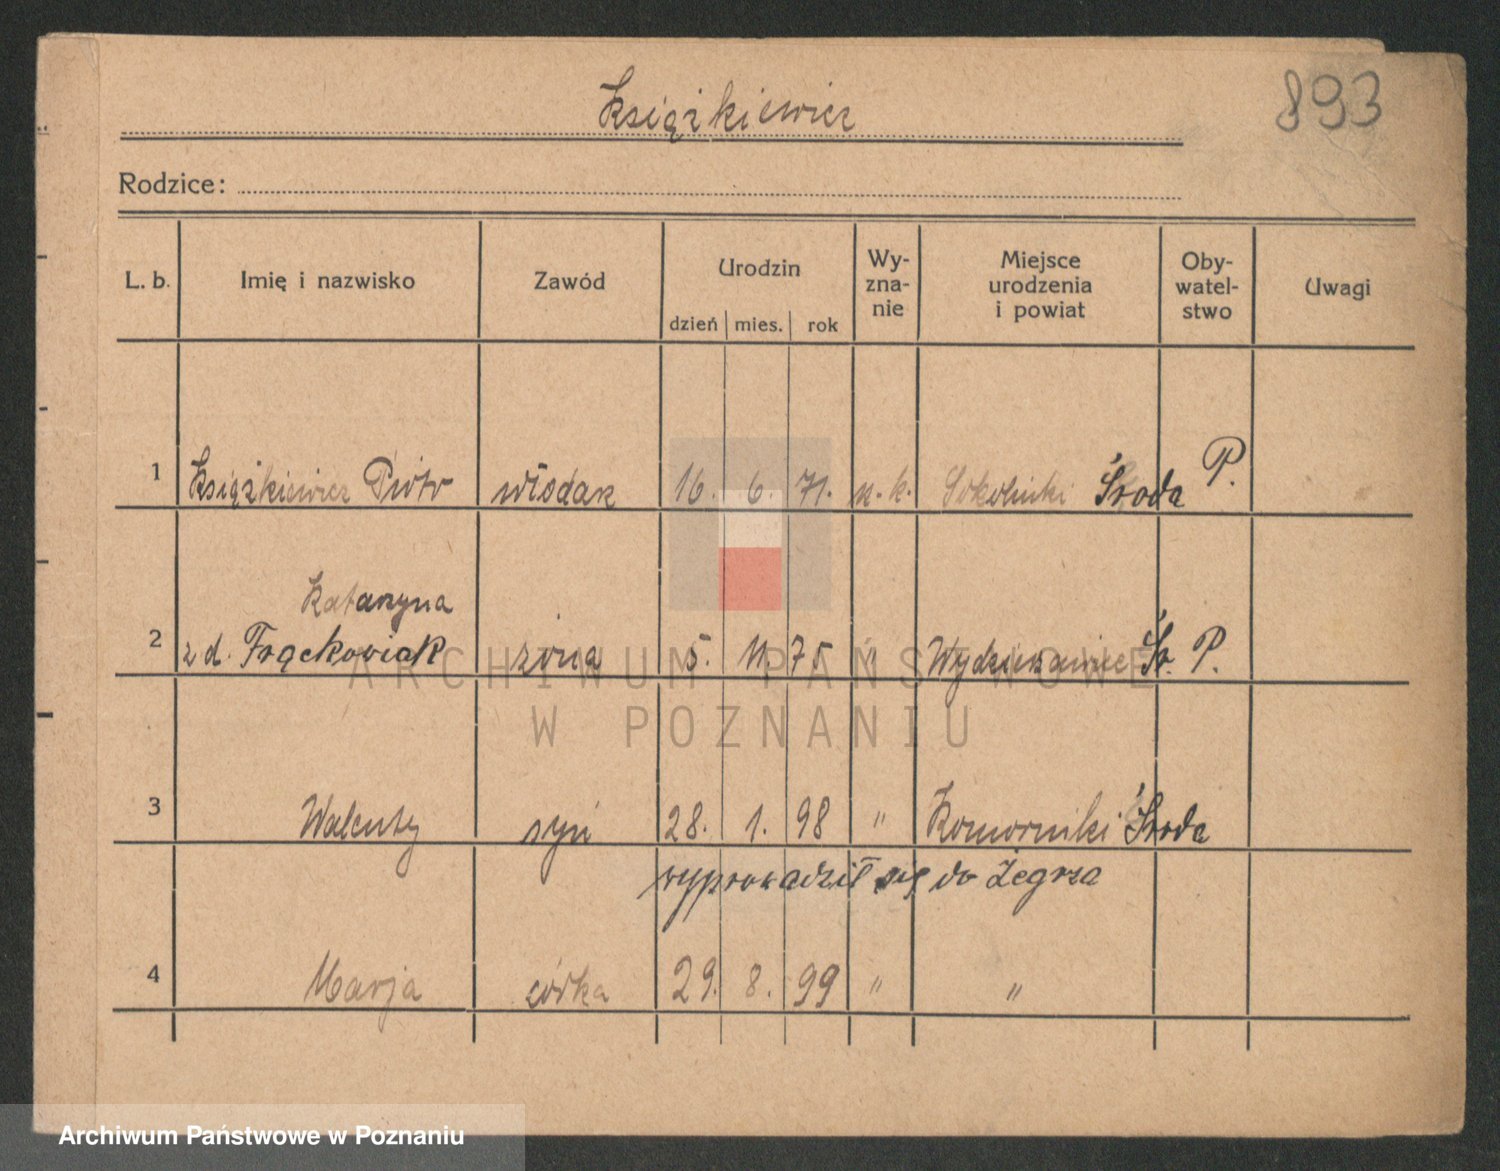 Książkiewicz
893
Rodzice:
L. b. Imię i nazwisko Zawód Urodzin dzień mies. rok Wy-zna-nie Miejsce urodzenia i powiat Oby-watel-stwo Uwagi
1 Książkiewicz Piotr włodarz 16. 6. 71. r. k. Sokolniki Środa P.
Katarzyna
2 z d. Frąckowiak żona 5. 11. 75 " Śr. P.
3 Walenty syn 28. 1. 98 " Komorniki Środa
wyprowadził się do Żegrza
4 Marja córka 29. 8. 99 " "
ARCHIWUM PAŃSTWOWE
W POZNANIU
Archiwum Państwowe w Poznaniu